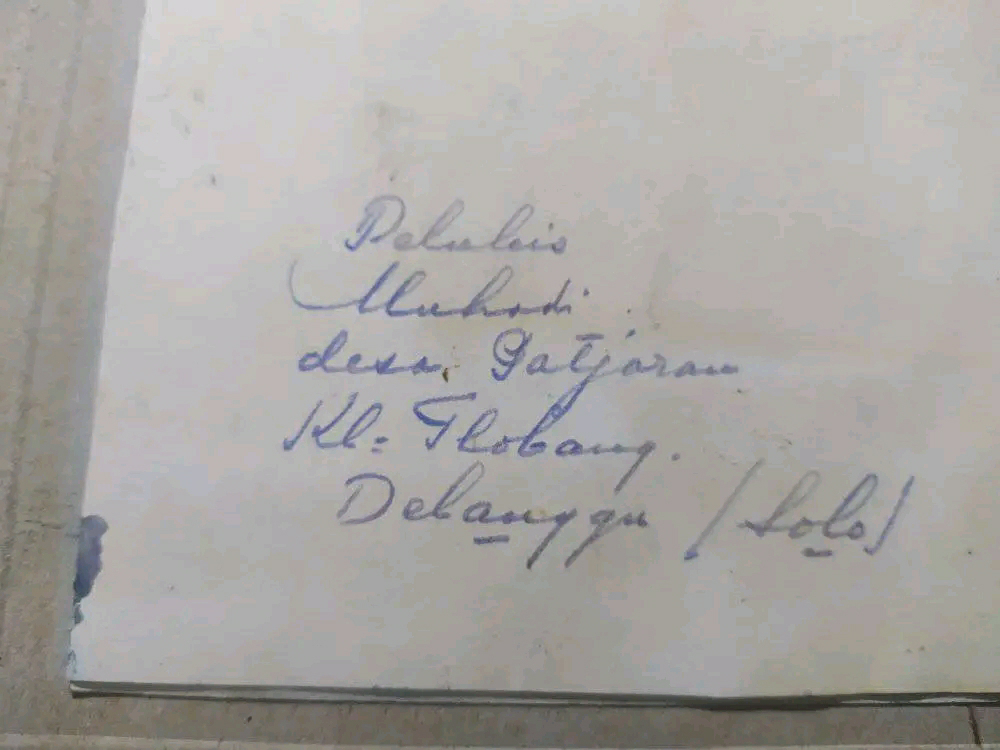 Pelukis
Muhadi
desa Gatjaran
Kl= Tlobang.
Delanggu (Solo)